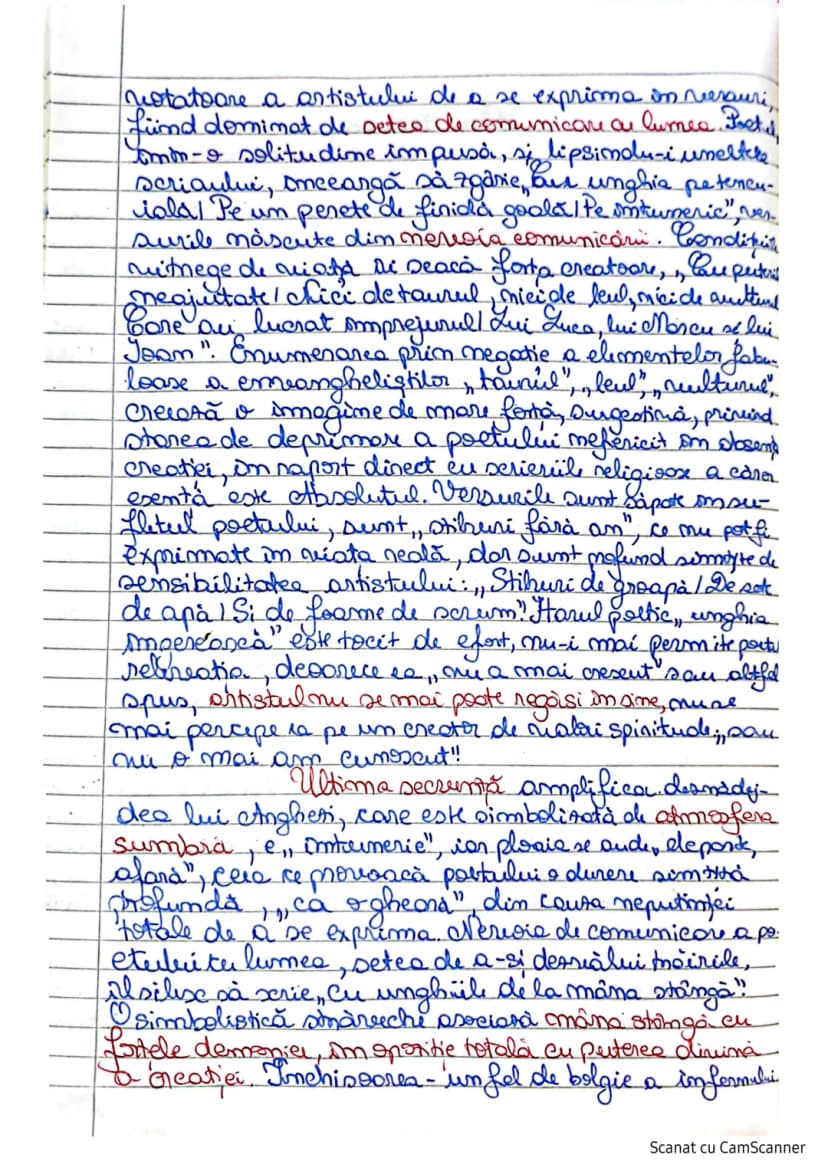 a artistului de a se exprima în versuri,
fiind dominat de setea de comunicare cu lumea.
într-o solitudine impusă, și lipsindu-i uneltele
scrisului, încearcă să zgârie „cu unghia pe tencu-
ială/ Pe un perete de firidă goală/ Pe întuneric", ver-
surile născute din nevoia comunicării. Condițiile
de viață îi seacă forța creatoare, „Cu puteri
neajutate/ Nici de taurul, nici de leul, nici de vulturul
Care au lucrat împrejurul/ Lui Luca, lui Marcu și lui
Ioan". Enumerarea prin negație a elementelor fabu-
loase a evangheliștilor „taurul", „leul", „vulturul",
creează o imagine de mare forță, sugestivă, privind
starea de deprimare a poetului nefericit în absența
creației, în raport direct cu scrierile religioase a căror
esență este Absolutul. Versurile sunt săpate în su-
fletul poetului, sunt „stihuri fără an", ce nu pot fi
exprimate în viața reală, dar sunt profund simțite de
sensibilitatea artistului: „Stihuri de groapă/ De sete
de apă/ Și de foame de scrum". Harul poetic, „unghia
îngerească" este tocit de efort, nu-i mai permite
, deoarece ea „nu a mai crescut" sau altfel
spus, artistul nu se mai poate regăsi în sine, nu se
mai percepe ca pe un creator de valori spirituale: „sau
nu o mai am cunoscut".
Ultima secvență amplifică deznădej-
dea lui Arghezi, care este simbolizată de atmosfera
sumbră, e „întunerie", iar ploaia se aude „departe,
afară", ceea ce provoacă poetului o durere simțită
profundă, „ca o gheară", din cauza neputinței
totale de a se exprima. Nevoia de comunicare a po-
etului cu lumea, setea de a-și dezvălui trăirile,
îl silesc să scrie „cu unghiile de la mâna stângă".
O simbolistică străveche asociază mâna stângă cu
forțele demonice, în opoziție totală cu puterea divină
a creației. Închisoarea - un fel de bolgie a infernului
Scanat cu CamScanner